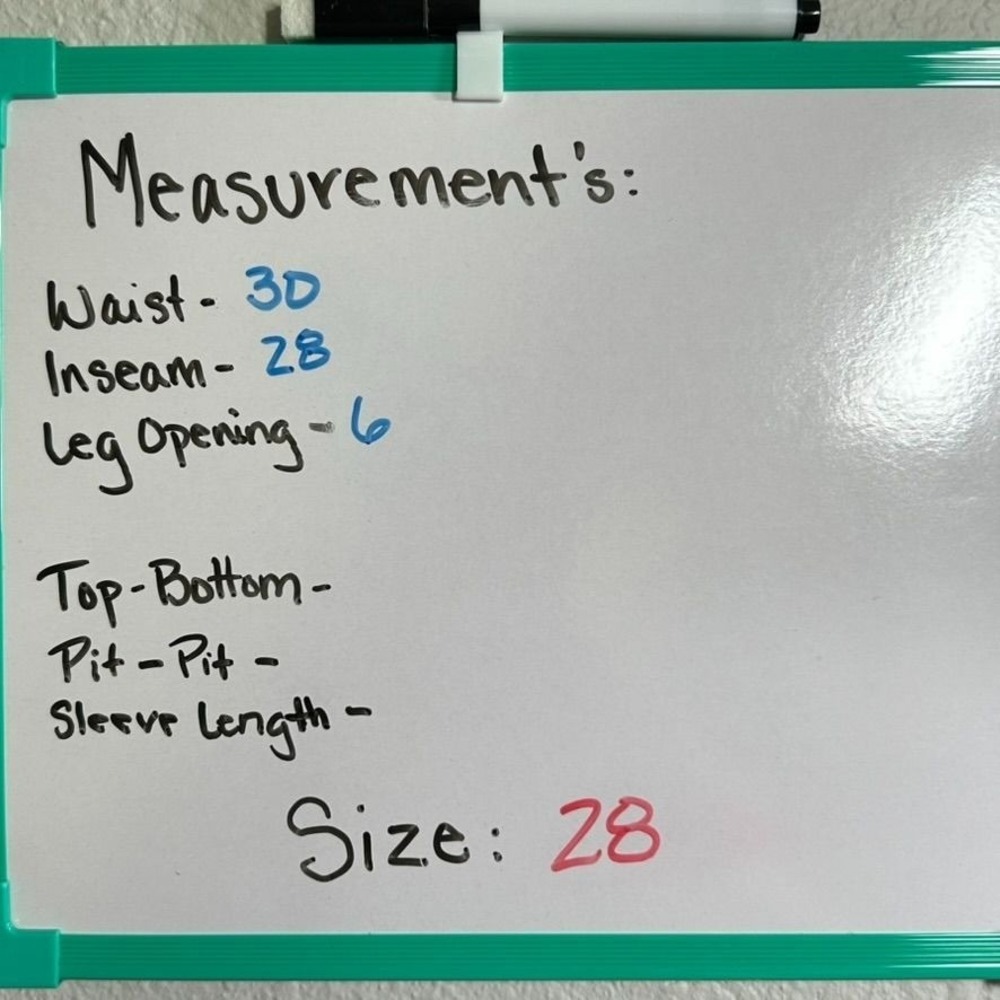 Measurement's:
Waist - 30
Inseam - 28
Leg Opening - 6
Top-Bottom -
Pit - Pit -
Sleeve Length -
Size: 28